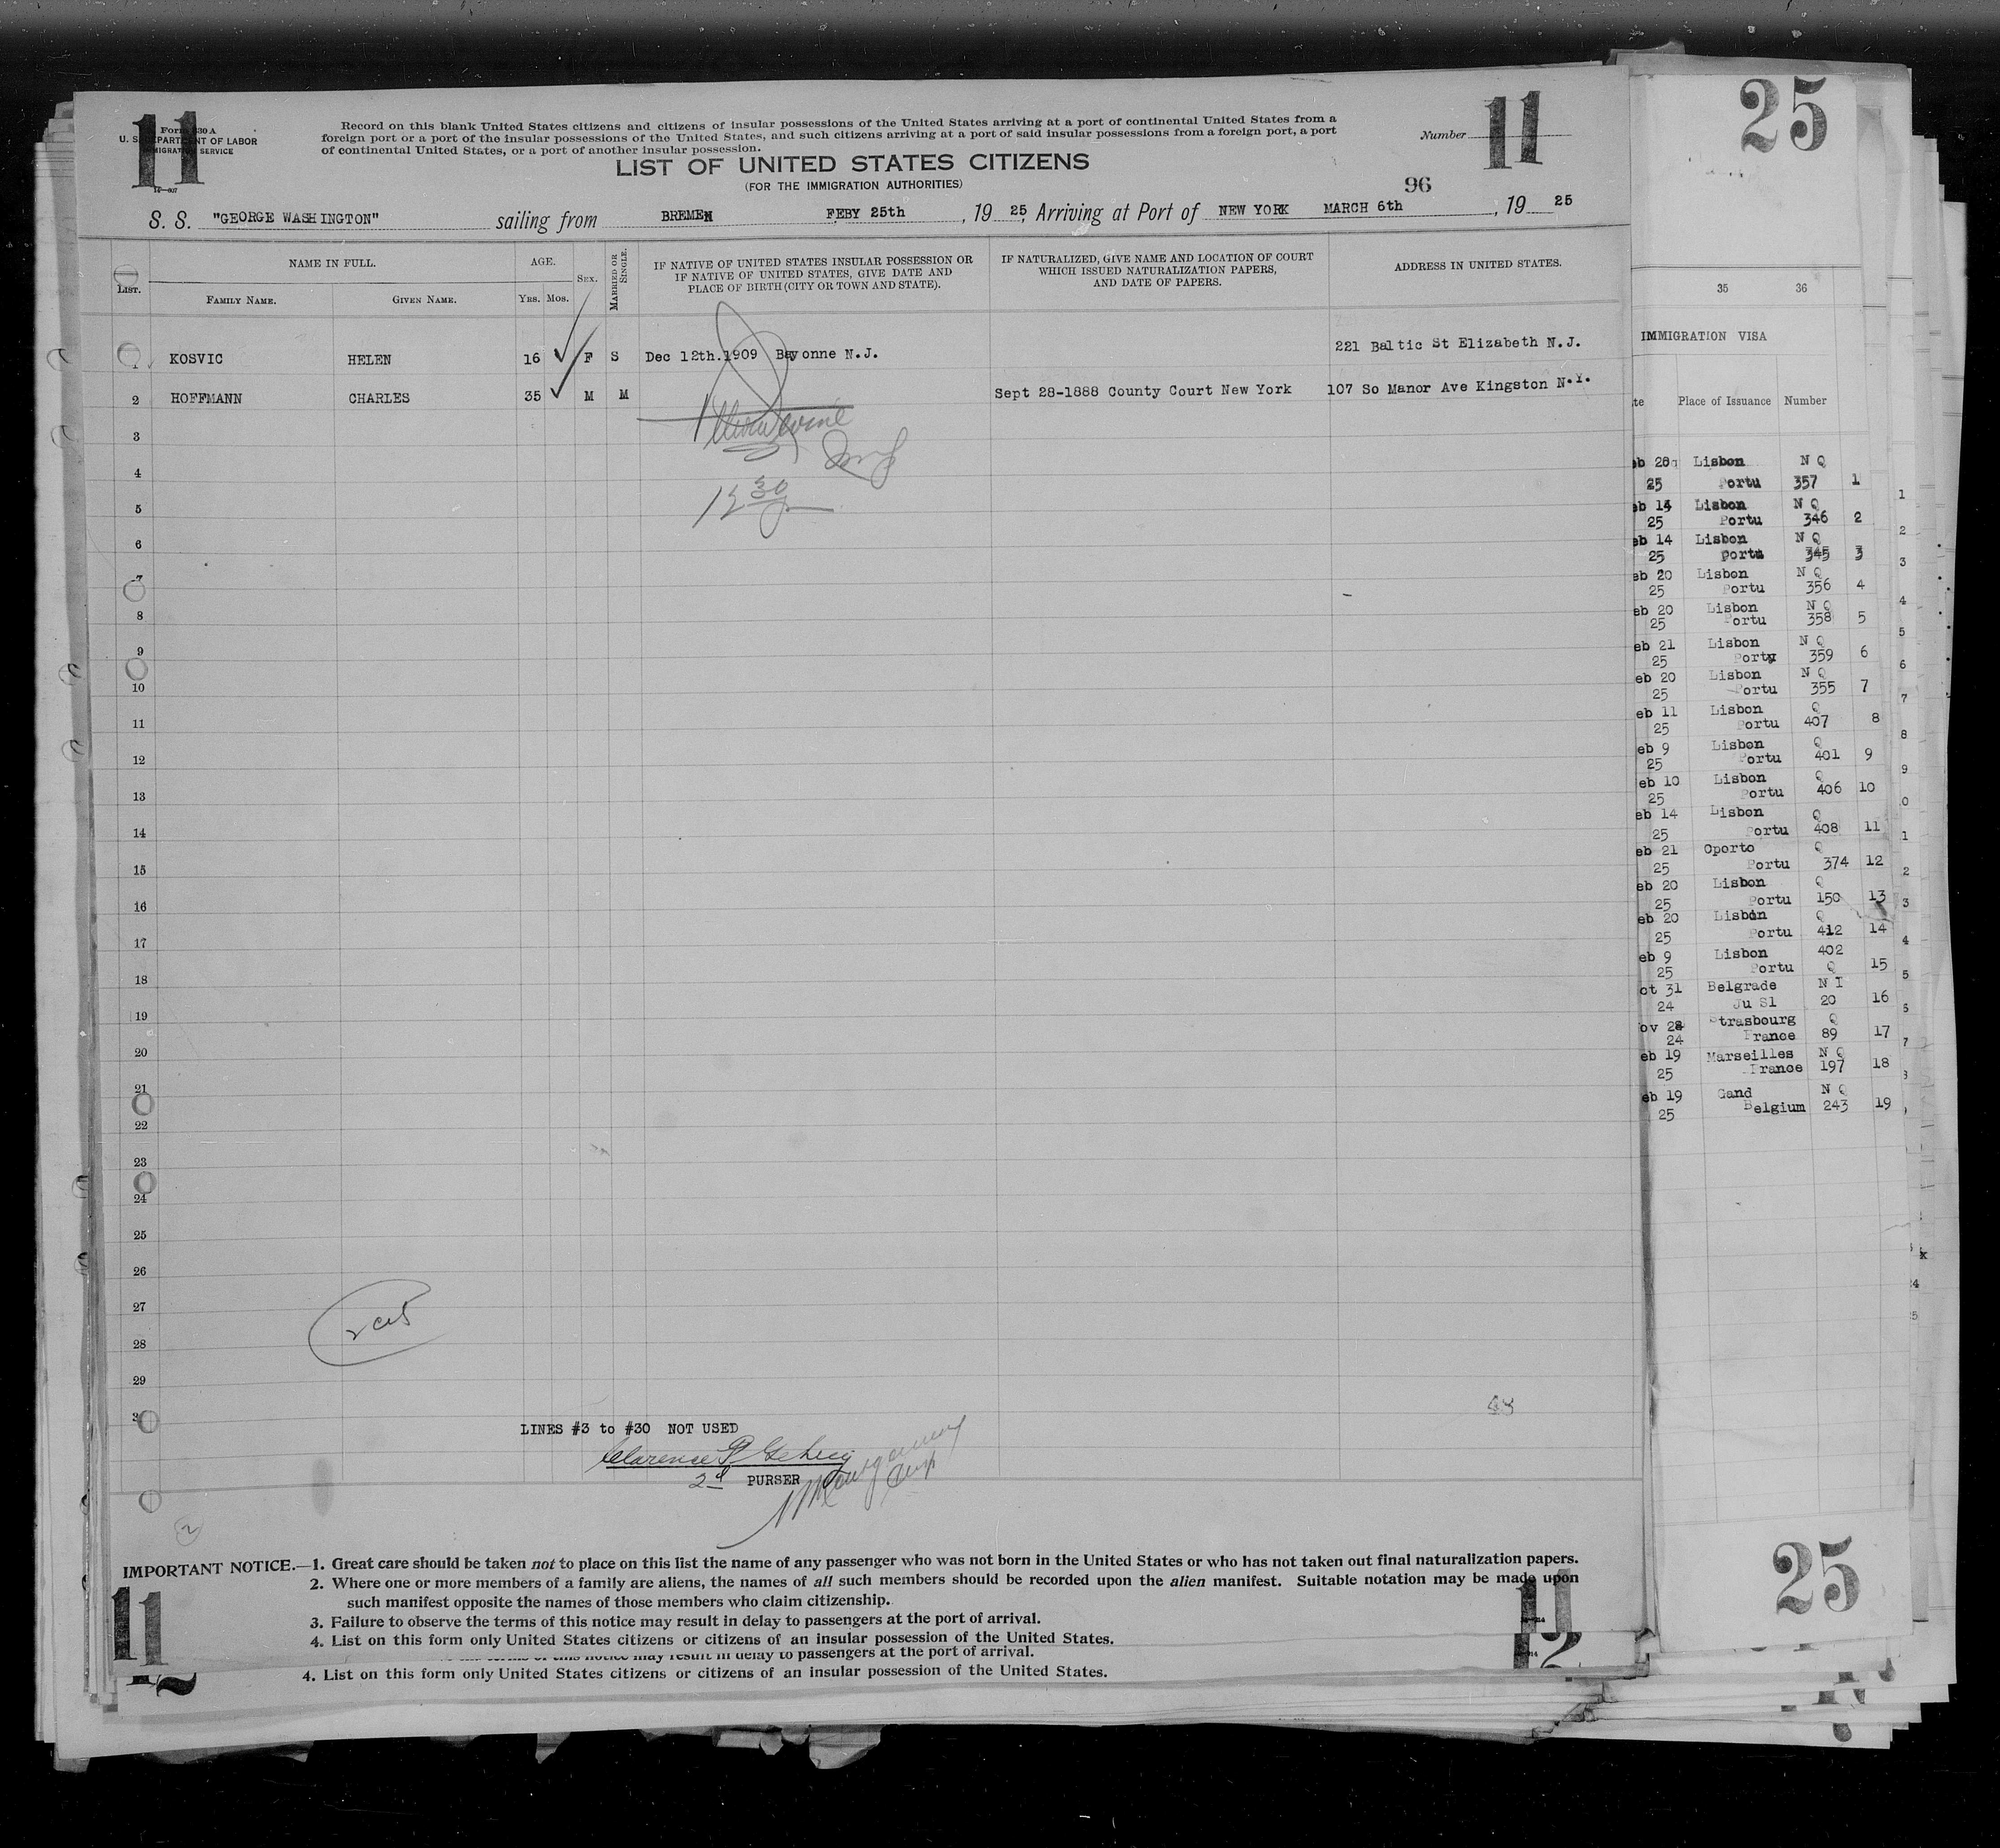 11
11
25
Form 630 A
U. S. DEPARTMENT OF LABOR
IMMIGRATION SERVICE
Record on this blank United States citizens and citizens of insular possessions of the United States arriving at a port of continental United States from a
foreign port or a port of the insular possessions of the United States, and such citizens arriving at a port of said insular possessions from a foreign port, a port
of continental United States, or a port of another insular possession.
Number
LIST OF UNITED STATES CITIZENS
(FOR THE IMMIGRATION AUTHORITIES)
96
S. S. "GEORGE WASHINGTON" sailing from BREMEN FEBY 25th, 19 25, Arriving at Port of NEW YORK MARCH 6th, 19 25
LIST. NAME IN FULL. AGE. SEX. MARRIED OR SINGLE. IF NATIVE OF UNITED STATES INSULAR POSSESSION OR IF NATIVE OF UNITED STATES, GIVE DATE AND PLACE OF BIRTH (CITY OR TOWN AND STATE). IF NATURALIZED, GIVE NAME AND LOCATION OF COURT WHICH ISSUED NATURALIZATION PAPERS, AND DATE OF PAPERS. ADDRESS IN UNITED STATES.
FAMILY NAME. GIVEN NAME. YRS. MOS.
1 KOSVIC HELEN 16 F S Dec 12th.1909 Bayonne N.J. 221 Baltic St Elizabeth N.J.
2 HOFFMANN CHARLES 35 M M Sept 28-1888 County Court New York 107 So Manor Ave Kingston N.Y.
3
4
5
6
7
8
9
10
11
12
13
14
15
16
17
18
19
20
21
22
23
24
25
26
27
28
29
30
LINES #3 to #30 NOT USED
2d PURSER
2
IMPORTANT NOTICE.—1. Great care should be taken not to place on this list the name of any passenger who was not born in the United States or who has not taken out final naturalization papers.
2. Where one or more members of a family are aliens, the names of all such members should be recorded upon the alien manifest. Suitable notation may be made upon
such manifest opposite the names of those members who claim citizenship.
3. Failure to observe the terms of this notice may result in delay to passengers at the port of arrival.
4. List on this form only United States citizens or citizens of an insular possession of the United States.
11
11
notice may result in delay to passengers at the port of arrival.
4. List on this form only United States citizens or citizens of an insular possession of the United States.
12
12
35 36
IMMIGRATION VISA
te Place of Issuance Number
eb 20 Lisbon N Q
25 Portu 357 1
eb 14 Lisbon N Q
25 Portu 346 2
eb 14 Lisbon N Q
25 Portu 345 3
eb 20 Lisbon N Q
25 Portu 356 4
eb 20 Lisbon N Q
25 Portu 358 5
eb 21 Lisbon N Q
25 Porty 359 6
eb 20 Lisbon N Q
25 Portu 355 7
eb 11 Lisbon Q
25 Portu 407 8
eb 9 Lisbon Q
25 Portu 401 9
eb 10 Lisbon Q
25 Portu 406 10
eb 14 Lisbon Q
25 Portu 408 11
eb 21 Oporto Q
25 Portu 374 12
eb 20 Lisbon Q
25 Portu 150 13
eb 20 Lisbin Q
25 Portu 412 14
eb 9 Lisbon 402
25 Portu Q 15
ct 31 Belgrade N I
24 Ju Sl 20 16
ov 28 Strasbourg Q
24 France 89 17
eb 19 Marseilles N Q
25 France 197 18
eb 19 Gand N Q
25 Belgium 243 19
25